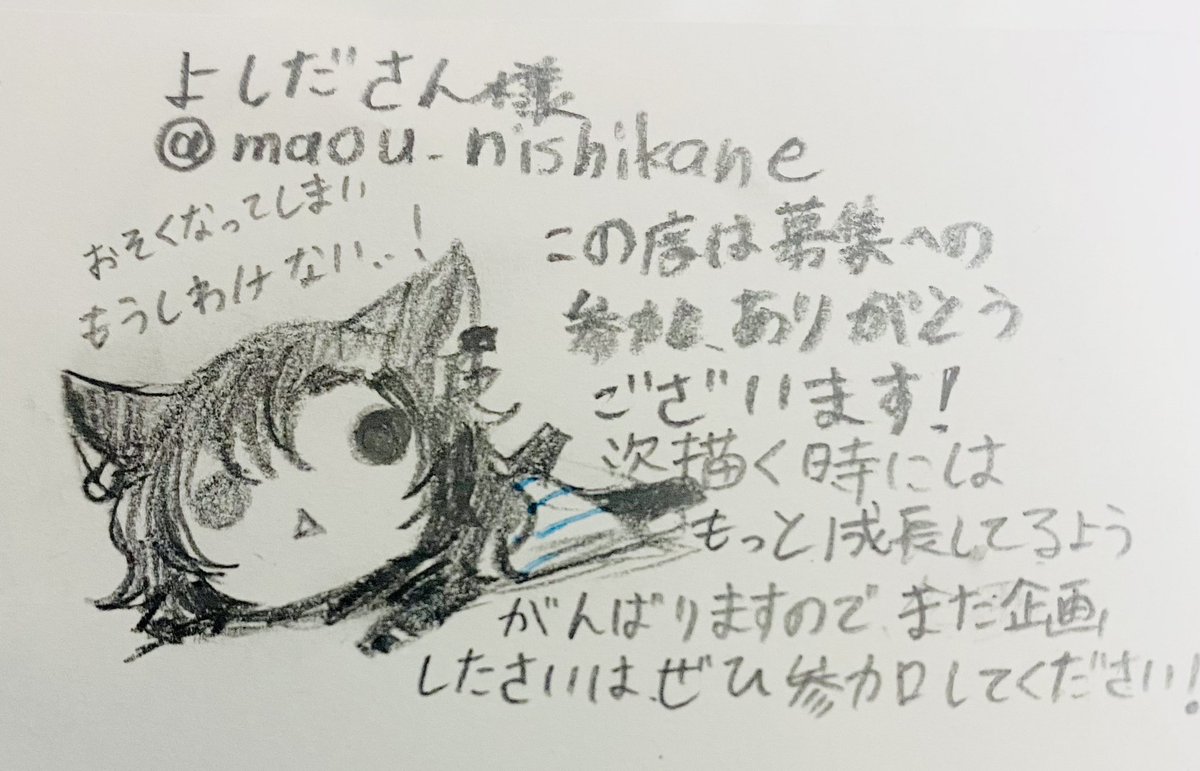 よしださん様
@maou_nishikane
おそくなってしまい
もうしわけない、、!
この度は募集への
参加、ありがとう
ございます!
次描く時には
もっと成長してるよう
がんばりますので、また企画
したさいは、ぜひ参加してください!